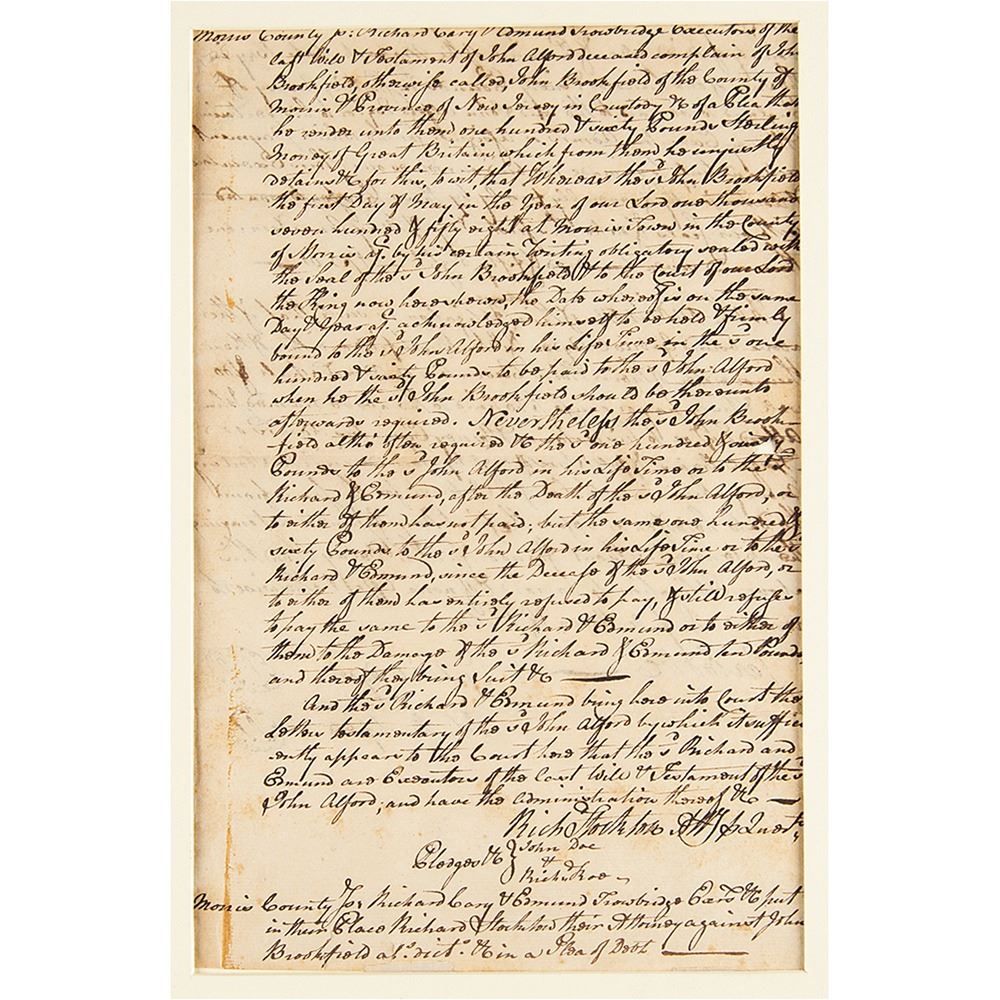 Morris County ss: Richard Cary & Edmund Trowbridge Executors of the
Last Will & Testament of John Alford deceased complain of John
Brookfield, otherwise called, John Brookfield of the County of
Morris & Province of New Jersey in Custody &c of a Plea that
he render unto them one hundred & sixty Pounds Sterling
Money of Great Britain which from them he unjustly
detains &c for this, to wit, that Whereas the sd John Brookfield
the first Day of May in the Year of our Lord one thousand
seven hundred & fifty eight at Morris Town in the County
of Morris afd. by his certain Writing obligatory sealed with
the Seal of the sd John Brookfield & to the Court of our Lord
the King now here shewn, the Date whereof is on the same
Day & Year afd. acknowledged himself to be held & firmly
bound to the sd John Alford in his Life Time, in the sd one
hundred & sixty Pounds to be paid to the sd John Alford
when he the sd John Brookfield should be thereunto
afterwards required. Nevertheless the sd John Brook-
field altho' often required &c the sd one hundred & sixty
Pounds to the sd John Alford in his Life Time or to the sd
Richard & Edmund, after the Death of the sd John Alford, or
to either of them has not paid; but the same one hundred &
sixty Pounds to the sd John Alford in his Life Time or to the sd
Richard & Edmund, since the Decease of the sd John Alford, or
to either of them has entirely refused to pay, & still refuses
to pay the same to the sd Richard & Edmund or to either of
them to the Damage of the sd Richard & Edmund ten Pounds
and thereof they bring Suit &c
And the sd Richard & Edmund bring here into Court the
Letters testamentary of the sd John Alford by which it suffici
ently appears to the Court here that the sd Richard and
Edmund are Executors of the Last Will & Testament of the sd
John Alford; and have the administration thereof &c
Rich Stockton Atty Quer
Pledges &c } John Doe
&
Rich Roe
Morris County ss: Richard Cary & Edmund Trowbridge Exrs &c put
in their Place Richard Stockton their Attorney against John
Brookfield als. dict. &c in a Plea of Debt